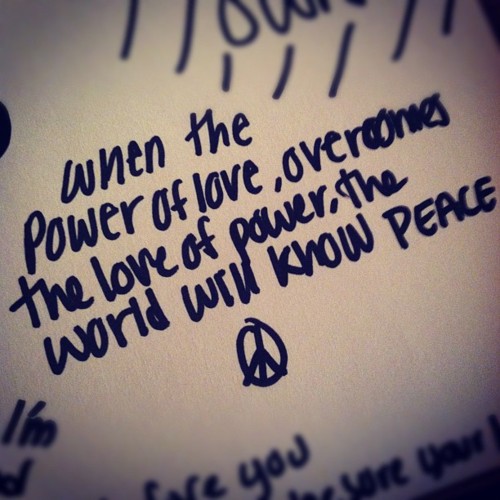 when the
power of love, overcomes
the love of power, the
world will know PEACE
I'm
you